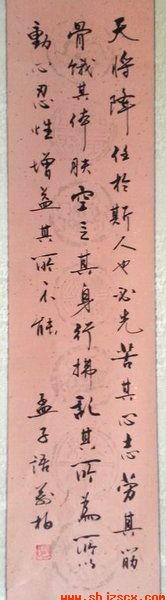 天将降任於斯人也必先苦其心志劳其筋
骨饿其体肤空乏其身行拂乱其所为所以
動心忍性增益其所不能
孟子语 万柏
www.shizscx.com